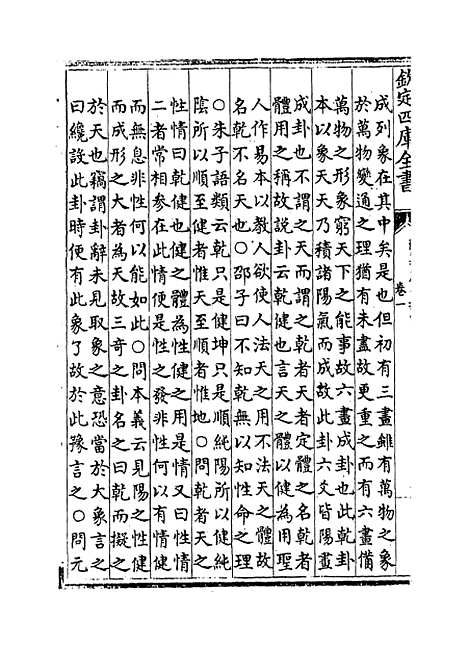 欽定四庫全書
卷一
成列象在其中矣是也但初有三畫雖有萬物之象
於萬物變通之理猶有未盡故更重之而有六畫備
萬物之形象窮天下之能事故六畫成卦也此乾卦
本以象天天乃積諸陽氣而成故此卦六爻皆陽畫
成卦也不謂之天而謂之乾者天者定體之名乾者
體用之稱故說卦云乾健也言天之體以健為用聖
人作易本以教人欲使人法天之用不法天之體故
名乾不名天也○邵子曰不知乾無以知性命之理
○朱子語類云乾健坤只是順純陽所以健純
陰所以順至健者惟天至順者惟地○問乾者天之
性情曰乾健也健之體為性健之用是情又曰性情
二者常相參在此情便是性之發非性何以有情健
而無息非性何以能如此○問本義云見陽之性健
而成形之大者為天故三奇之卦名之曰乾而擬之
於天也竊謂卦辭未見取象之意恐當於大象言之
曰纔設此卦時便有此象了故於此豫言之○問元